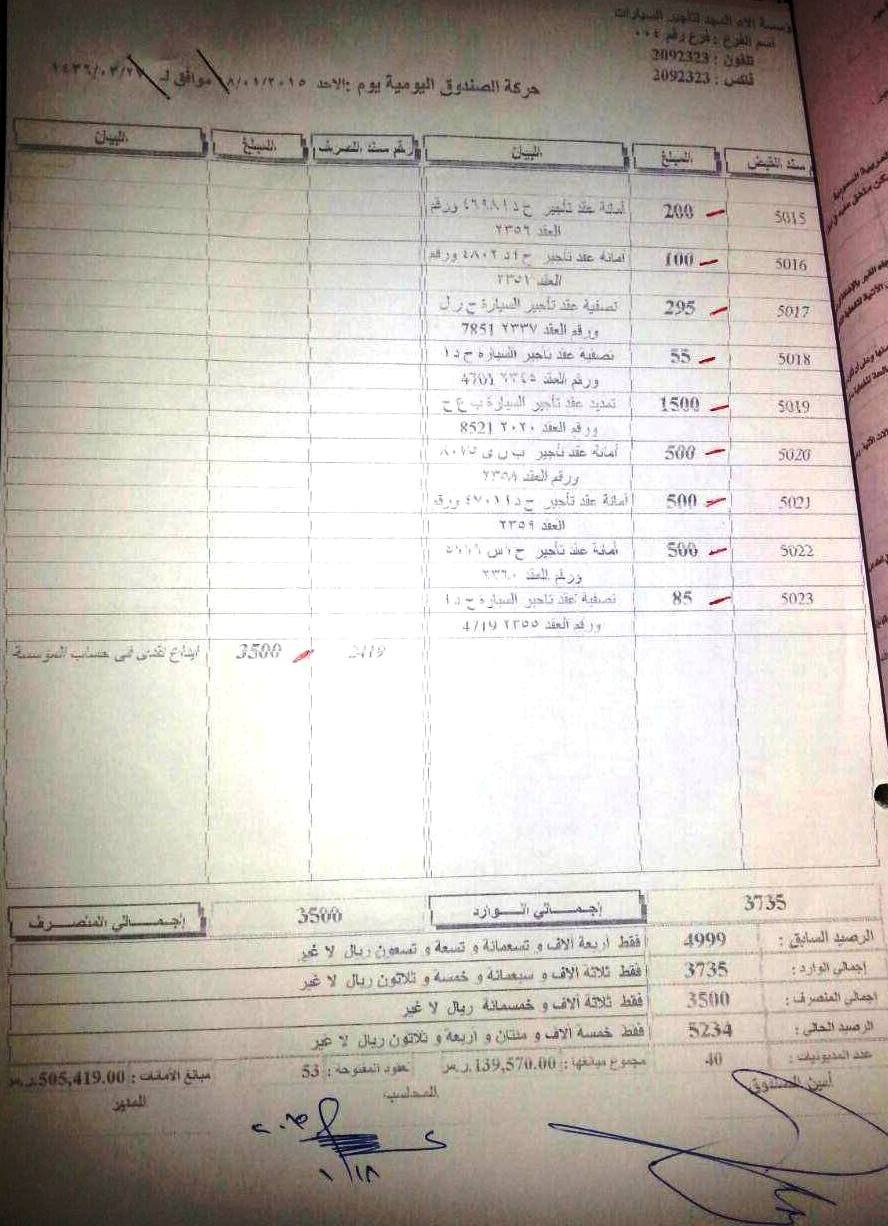 تأجير السيارات
اسم الفرع : فرع رقم ٠٠٤
تلفون : 2092323
فاكس : 2092323
حركة الصندوق اليومية يوم :الاحد ١٨/٠١/٢٠١٥ موافق لـ ١٤٣٦/٠٣/٢٧
سند القبض المبلغ البيان رقم سند الصرف المبلغ البيان
5015 200 أمانة عقد تأجير ح د ا ٤٦٩٨ ورقم
العقد ٢٣٥٦
5016 100 أمانة عقد تأجير ح ا د ٤٨٠٢ ورقم
العقد
5017 295 تصفية عقد تأجير السيارة ح ر ل
7851 ورقم العقد ٢٣٣٧
5018 55 تصفية عقد تأجير السيارة ح د ا
4701 ورقم العقد ٢٣٤٥
5019 1500 تمديد عقد تأجير السيارة ب ع ح
8521 ورقم العقد ٢٠٢٠
5020 500 أمانة عقد تأجير ب س ى ٨٠٧٥
ورقم العقد ٢٣٥٨
5021 500 أمانة عقد تأجير ح د ا ٤٧٠١ ورقم
العقد ٢٣٥٩
5022 500 أمانة عقد تأجير
ورقم العقد ٢٣٦٠
5023 85 تصفية عقد تأجير السيارة ح د ا
4719 ورقم العقد ٢٣٥٥
2419 3500 ايداع نقدى فى حساب المؤسسة
3735 إجمـــالي الـــوارد 3500 إجمـــالي المنصـرف
الرصيد السابق : 4999 فقط اربعة الاف و تسعمائة و تسعة و تسعون ريال لا غير
إجمالي الوارد : 3735 فقط ثلاثة الاف و سبعمائة و خمسة و ثلاثون ريال لا غير
اجمالي المنصرف : 3500 فقط ثلاثة آلاف و خمسمائة ريال لا غير
الرصيد الحالي : 5234 فقط خمسة الاف و مئتان و اربعة و ثلاثون ريال لا غير
عدد المديونيات : 40 مجموع مبالغها : 139,570.00 ر.س عقود المفتوحة : 53 مبالغ الأمانات : 505,419.00 ر.س
أمين الصندوق المحاسب المدير
١٨/١